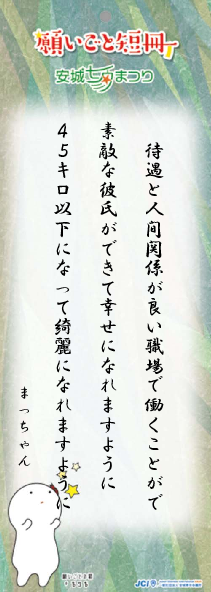 願いごと短冊
安城七夕まつり
待遇と人間関係が良い職場で働くことがで
素敵な彼氏ができて幸せになれますように
45キロ以下になって綺麗になれますように
まっちゃん
願いごと短冊
JCI